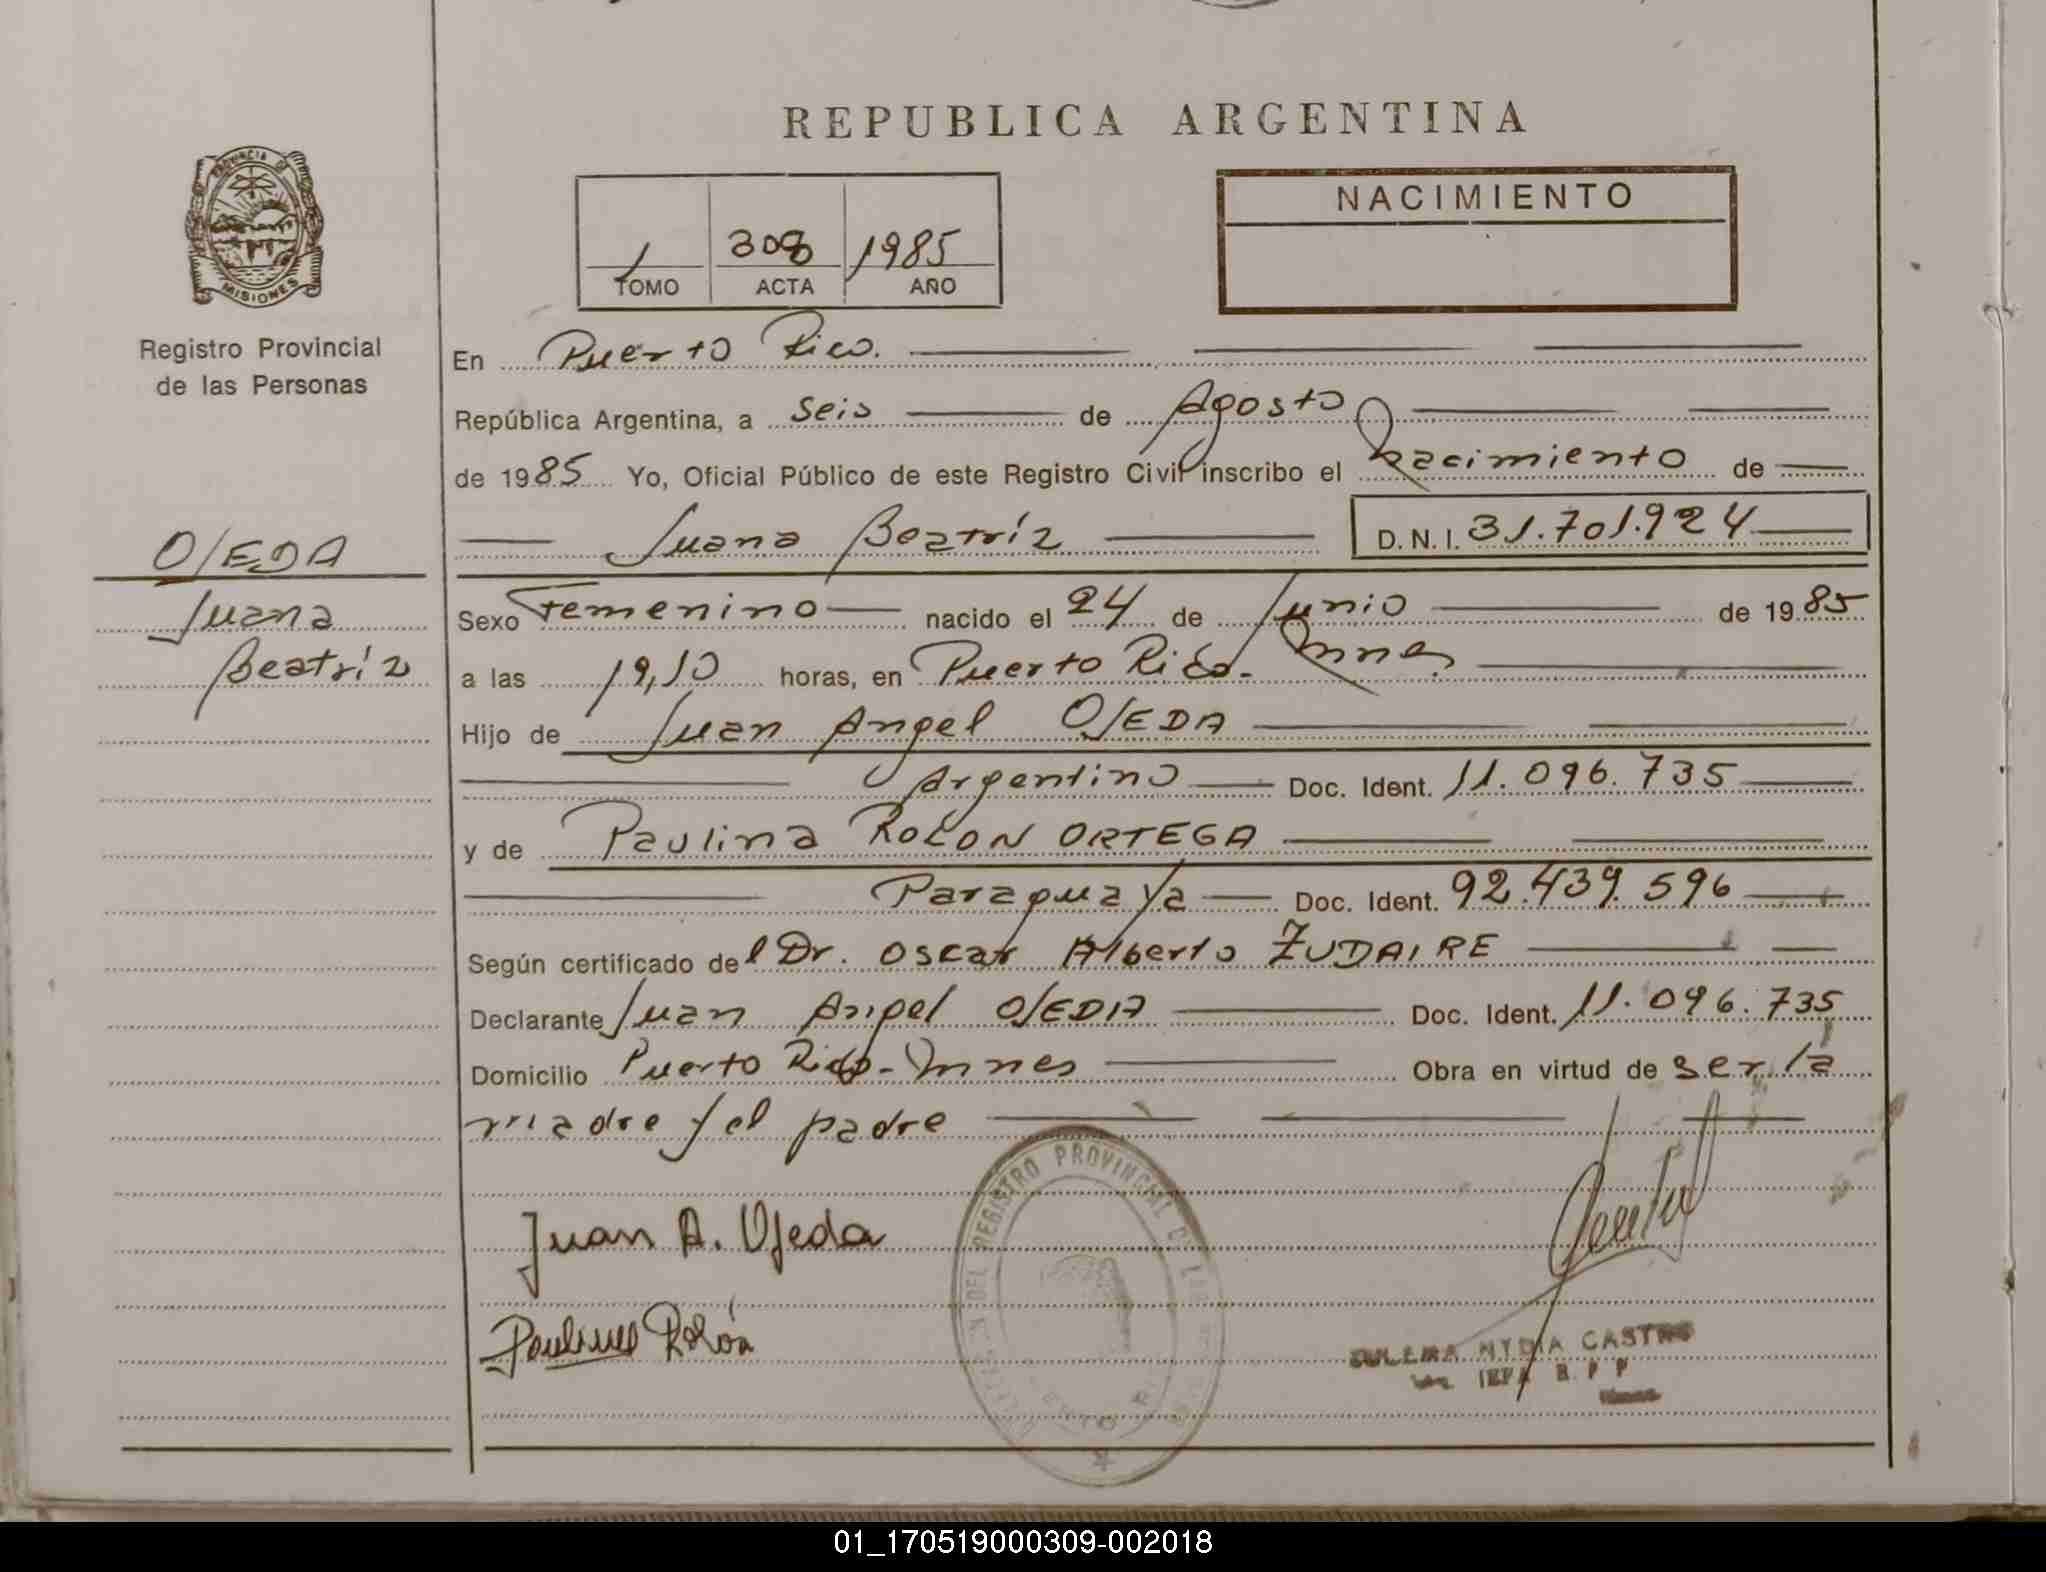 REPUBLICA ARGENTINA
PROVINCIA DE
MISIONES
Registro Provincial
de las Personas
1 308 1985
TOMO ACTA AÑO
NACIMIENTO
En Puerto Rico.
República Argentina, a seis de Agosto
de 1985 Yo, Oficial Público de este Registro Civil inscribo el Nacimiento de
Juana Beatríz D.N.I. 31.701.924
OJEDA
Juana
Beatríz
Sexo Femenino nacido el 24 de Junio de 1985
a las 19,10 horas, en Puerto Rico. Mnes.
Hijo de Juan Angel OJEDA
Argentino Doc. Ident. 11.096.735
y de Paulina ROLON ORTEGA
Paraguaya Doc. Ident. 92.439.596
Según certificado del Dr. Oscar Alberto ZUDAIRE
Declarante Juan Angel OJEDA Doc. Ident. 11.096.735
Domicilio Puerto Rico - Mnes Obra en virtud de ser la
madre y el padre
DEL REGISTRO PROVINCIAL DE LAS
Juan A. Ojeda
Paulina Rolón
ZULEMA NYDIA CASTRO
JEFA R. P. P.
01_170519000309-002018